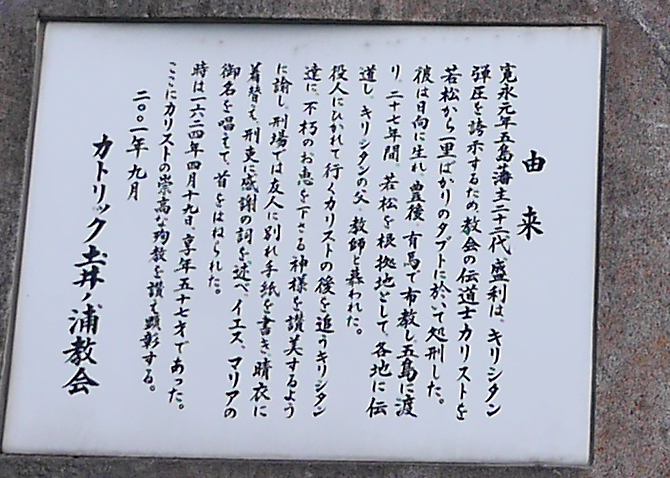 由来
寛永元年五島藩主二十二代 盛利は、キリシタン
弾圧を誇示するため教会の伝道士カリストを
若松から一里ばかりのタブトに於いて処刑した。
彼は日向に生れ、豊後、有馬で布教し五島に渡
り、二十七年間、若松を根拠地として、各地に伝
道し、キリシタンの父、教師と慕われた。
役人にひかれて行くカリストの後を追うキリシタン
達に、不朽のお恵を下さる神様を讃美するよう
に諭し、刑場では友人に別れ手紙を書き、晴衣に
着替え、刑吏に感謝の詞を述べ、イエス、マリアの
御名を唱えて、首をはねられた。
時は一六二四年四月十九日、享年五十七才であった。
ここにカリストの崇高な殉教を讃えて顕彰する。
二〇〇一年 九月
カトリック土井ノ浦教会